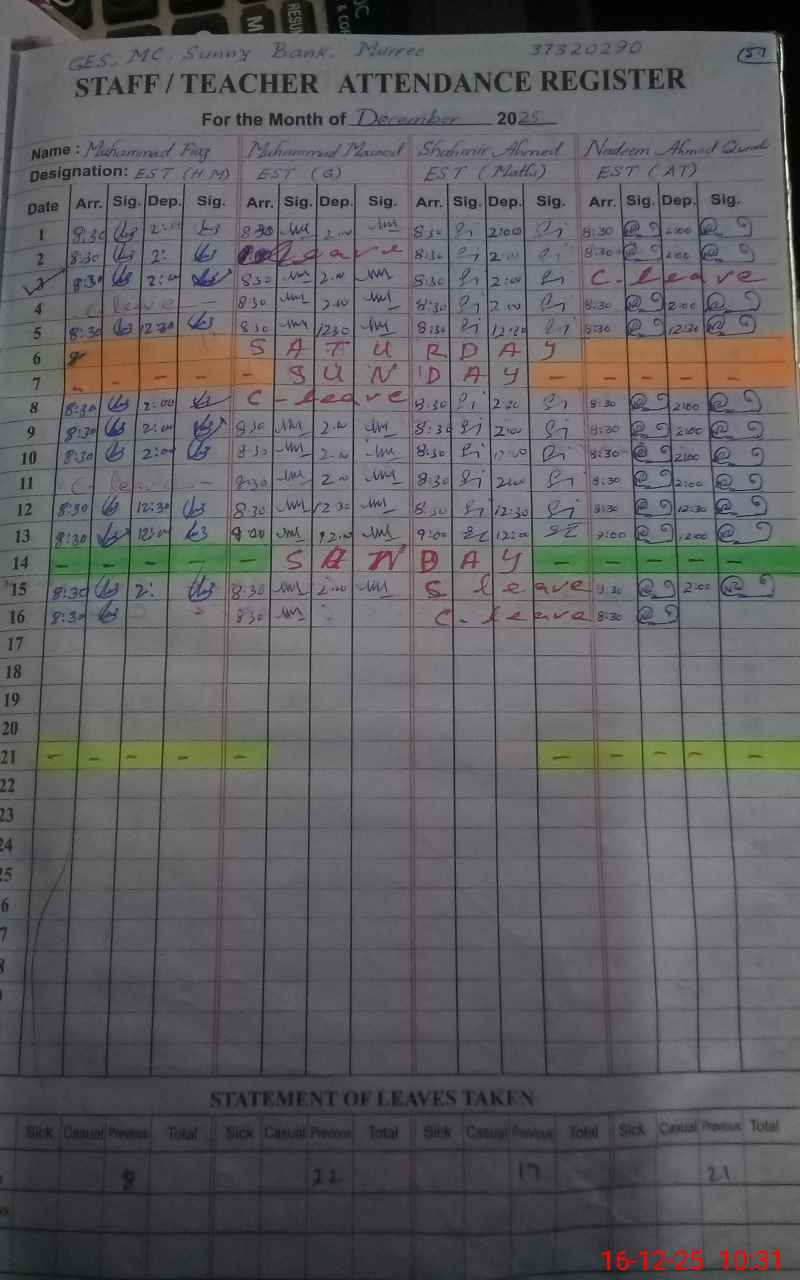 GES. MC. Sunny Bank. Murree 37320290
57
STAFF / TEACHER ATTENDANCE REGISTER
For the Month of December 2025
Name : Muhammad Fiaz Muhammad Masood Shahmir Ahmed Nadeem Ahmed
Designation: EST (H.M) EST (G) EST (Maths) EST (AT)
Date Arr. Sig. Dep. Sig. Arr. Sig. Dep. Sig. Arr. Sig. Dep. Sig. Arr. Sig. Dep. Sig.
1 8:30 2:00 8:30 2:00 8:30 2:00 8:30 2:00
2 8:30 2: leave 8:30 2:00 8:30 2:00
3 8:30 2:00 8:30 2:00 8:30 2:00 C-leave
4 C leave - 8:30 2:00 8:30 2:00 8:30 2:00
5 8:30 12:30 8:30 12:30 8:30 12:30 8:30 12:30
6 SATURDAY
7 - - - - - SUNDAY - - - - -
8 8:30 2:00 C-leave 8:30 2:00 8:30 2:00
9 8:30 2:00 8:30 2:00 8:30 2:00 8:30 2:00
10 8:30 2:00 8:30 2:00 8:30 8:30 2:00
11 C leave - 8:30 2:00 8:30 2:00 8:30 2:00
12 8:30 12:30 8:30 12:30 8:30 12:30 8:30 12:30
13 8:30 12:00 12:00 9:00 12:00 9:00 12:00
14 - - - - - SUNDAY - - - - -
15 8:30 2: 8:30 2:00 S leave 8:30 2:00
16 8:30 8:30 C-leave 8:30
17
18
19
20
21 - - - - - - - - - -
22
23
24
25
6
7
8
9
STATEMENT OF LEAVES TAKEN
Sick Casual Previous Total Sick Casual Previous Total Sick Casual Previous Total Sick Casual Previous Total
8 22 17 21
16-12-25 10:31